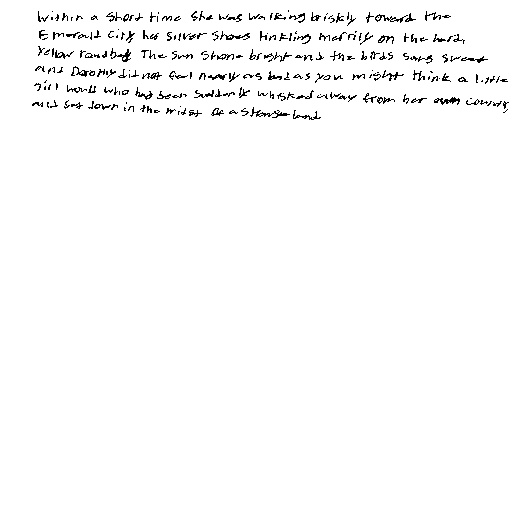 Within a short time she was walking briskly toward the
Emerald City her silver shoes tinkling merrily on the hard,
Yellow roadbed The sun shone bright and the birds sang sweet
and Dorothy did not feel nearly as bad as you might think a little
girl would who had been suddenly whisked away from her own country
and set down in the midst of a strange land